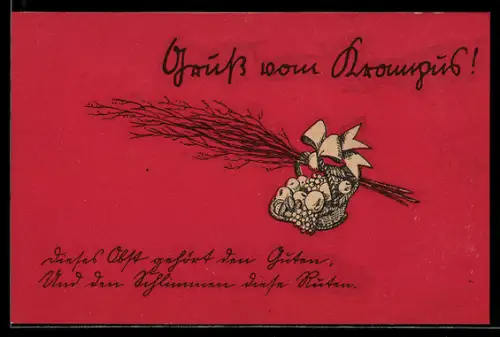 Gruß vom Krampus!
Dieses Obst gehört den Guten,
Und den Schlimmen diese Ruten.